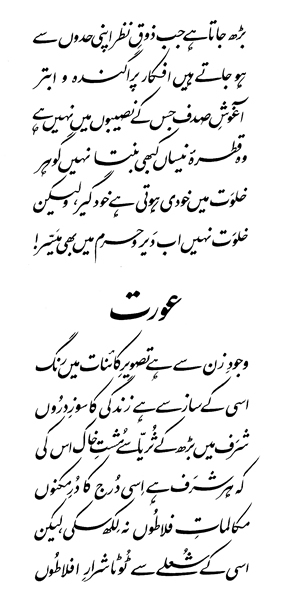 بڑھ جاتا ہے جب ذوقِ نظر اپنی حدوں سے
ہو جاتے ہیں افکار پراگندہ و ابتر
آغوشِ صدف جس کے نصیبوں میں نہیں ہے
وہ قطرۂ نیساں کبھی بنتا نہیں گوہر
خلوت میں خودی ہوتی ہے خودگیر، ولیکن
خلوت نہیں اب دَیر و حرم میں بھی میسّر!
عورت
وجودِ زن سے ہے تصویرِ کائنات میں رنگ
اسی کے ساز سے ہے زندگی کا سوزِ درُوں
شرَف میں بڑھ کے ثُریّا سے مُشتِ خاک اس کی
کہ ہر شرَف ہے اِسی دُرج کا دُرِ مکنوں
مکالماتِ فلاطوں نہ لکھ سکی، لیکن
اسی کے شُعلے سے ٹُوٹا شرارِ افلاطوں